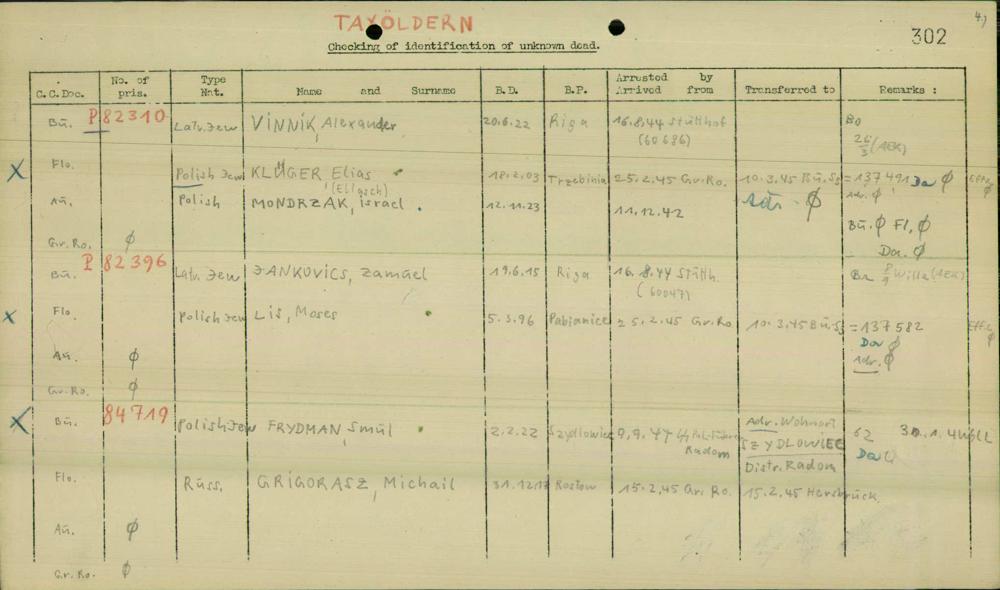 4.)
TAXÖLDERN
302
Checking of identification of unknown dead.
C.C.Doc. No. of pris. Type Nat. Name and Surname B.D. B.P. Arrested by Arrived from Transferred to Remarks :
Bü. P 82310 Latv. Jew VINNIK, Alexander 20.6.22 Riga 16.8.44 Stutthof Bo
(60686) 26/3 (AEK)
X Flo. Polish Jew KLÜGER Elias 18.2.03 Trzebinia 25.2.45 Gr.Ro. 10.3.45 Bü. = 137491 Da ∅
(Eliasch) Adr. ∅ Adr. ∅
Au. Polish MONDRZAK, israel 12.11.23 11.12.42
Bü. ∅ Fl. ∅
Gr. Ro. ∅ Da. ∅
Bü. P 82396 Latv. Jew JANKOVICS, Zamuel 19.6.15 Riga 16.8.44 Stütth. Wille (AEK)
(60047)
X Flo. Polish Jew Lis, Moses 5.3.96 Pabianice 25.2.45 Gr. Ro. 10.3.45 Bü. = 137582
Da ∅
Au. ∅ Adr. ∅
Gr. Ro. ∅
X Bü. 84719 Polish Jew FRYDMAN, Smul 2.2.22 Szydlowiec 9.9.44 Radom Adr. Wohnort SZYDLOWIEC Distr. Radom 62
Da
Flo. Russ. GRIGORASZ, Michail 31.12.17 Rostow 15.2.45 Gr. Ro. 15.2.45 Hersbrück.
Au. ∅
Gr. Ro. ∅